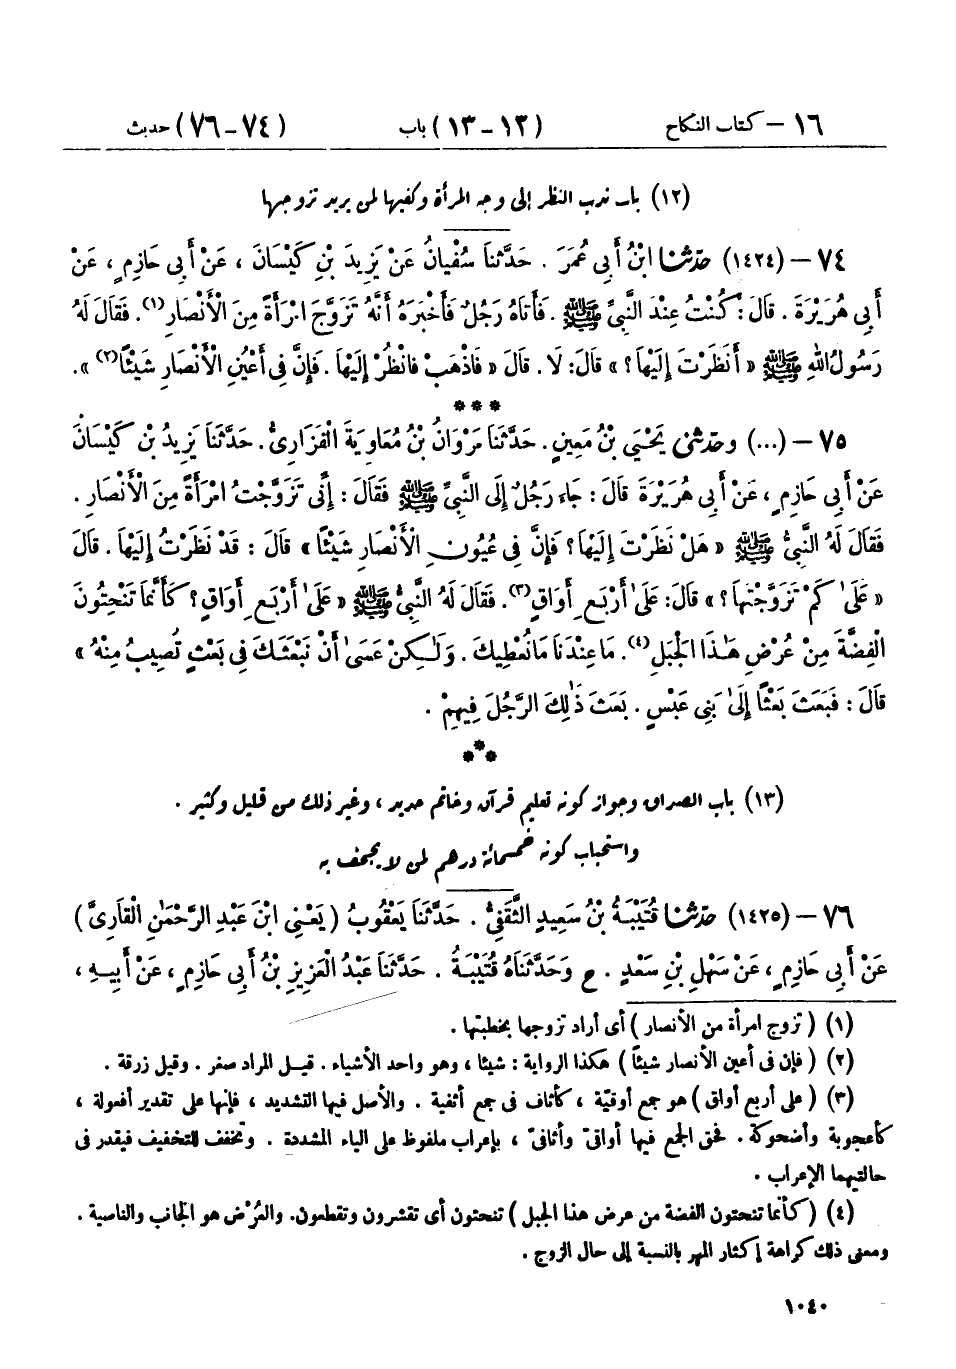 ١٦ – كتاب النكاح (١٢ – ١٣) باب (٧٤ – ٧٦) حديث
(١٢) باب ندب النظر إلى وجه المرأة وكفيها لمن يريد تزوجها
٧٤ – (١٤٢٤) حَدَّثَنَا ابْنُ أَبِي عُمَرَ . حَدَّثَنَا سُفْيَانُ عَنْ يَزِيدَ بْنِ كَيْسَانَ ، عَنْ أَبِي حَازِمٍ ، عَنْ
أَبِي هُرَيْرَةَ . قَالَ : كُنْتُ عِنْدَ النَّبِيِّ ﷺ . فَأَتَاهُ رَجُلٌ فَأَخْبَرَهُ أَنَّهُ تَزَوَّجَ امْرَأَةً مِنَ الْأَنْصَارِ(١) . فَقَالَ لَهُ
رَسُولُ اللهِ ﷺ « أَنَظَرْتَ إِلَيْهَا ؟ » قَالَ : لَا . قَالَ « فَاذْهَبْ فَانْظُرْ إِلَيْهَا . فَإِنَّ فِي أَعْيُنِ الْأَنْصَارِ شَيْئًا(٢) » .
***
٧٥ – (...) وحَدَّثَنِي يَحْيَى بْنُ مَعِينٍ . حَدَّثَنَا مَرْوَانُ بْنُ مُعَاوِيَةَ الْفَزَارِيُّ . حَدَّثَنَا يَزِيدُ بْنُ كَيْسَانَ
عَنْ أَبِي حَازِمٍ ، عَنْ أَبِي هُرَيْرَةَ قَالَ : جَاءَ رَجُلٌ إِلَى النَّبِيِّ ﷺ فَقَالَ : إِنِّي تَزَوَّجْتُ امْرَأَةً مِنَ الْأَنْصَارِ .
فَقَالَ لَهُ النَّبِيُّ ﷺ « هَلْ نَظَرْتَ إِلَيْهَا ؟ فَإِنَّ فِي عُيُونِ الْأَنْصَارِ شَيْئًا » قَالَ : قَدْ نَظَرْتُ إِلَيْهَا . قَالَ
« عَلَى كَمْ تَزَوَّجْتَهَا ؟ » قَالَ : عَلَى أَرْبَعِ أَوَاقٍ(٣) . فَقَالَ لَهُ النَّبِيُّ ﷺ « عَلَى أَرْبَعِ أَوَاقٍ ؟ كَأَنَّمَا تَنْحِتُونَ
الْفِضَّةَ مِنْ عُرْضِ هَذَا الْجَبَلِ(٤) . مَا عِنْدَنَا مَا نُعْطِيكَ . وَلَكِنْ عَسَى أَنْ نَبْعَثَكَ فِي بَعْثٍ تُصِيبُ مِنْهُ »
قَالَ : فَبَعَثَ بَعْثًا إِلَى بَنِي عَبْسٍ . بَعَثَ ذَلِكَ الرَّجُلَ فِيهِمْ .
***
(١٣) باب الصداق وجواز كونه تعليم قرآن وخاتم حديد ، وغير ذلك من قليل وكثير .
واستحباب كونه خمسمائة درهم لمن لا يجحف به
٧٦ – (١٤٢٥) حَدَّثَنَا قُتَيْبَةُ بْنُ سَعِيدٍ الثَّقَفِيُّ . حَدَّثَنَا يَعْقُوبُ ( يَعْنِي ابْنَ عَبْدِ الرَّحْمَنِ الْقَارِيَّ )
عَنْ أَبِي حَازِمٍ ، عَنْ سَهْلِ بْنِ سَعْدٍ . ح وَحَدَّثَنَاهُ قُتَيْبَةُ . حَدَّثَنَا عَبْدُ الْعَزِيزِ بْنُ أَبِي حَازِمٍ ، عَنْ أَبِيهِ ،
(١) ( تزوج امرأة من الأنصار ) أى أراد تزوجها بخطبتها .
(٢) ( فإن فى أعين الأنصار شيئاً ) هكذا الرواية : شيئا ، وهو واحد الأشياء . قيل المراد صغر . وقيل زرقة .
(٣) ( على أربع أواق ) هو جمع أوقيّة ، كأثاف فى جمع أثفية . والأصل فيها التشديد ، فإنها على تقدير أفعولة ،
كأعجوبة وأضحوكة . فحق الجمع فيها أواقىّ وأثافىّ ، بإعراب ملفوظ على الياء المشددة . وتخفف للتخفيف فيقدر فى
حالتيهما الإعراب .
(٤) ( كأنما تنحتون الفضة من عرض هذا الجبل ) تنحتون أى تقشرون وتقطعون. والعُرْض هو الجانب والناصية .
ومعنى ذلك كراهة إكثار المهر بالنسبة إلى حال الزوج .
١٠٤٠